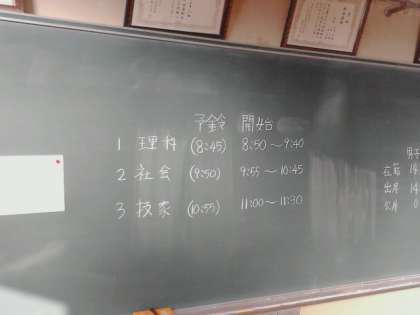 予鈴 開始
1 理科 (8:45) 8:50～9:40
2 社会 (9:50) 9:55～10:45
3 技家 (10:55) 11:00～11:30
男子
在籍 14
出席 14
欠席 0